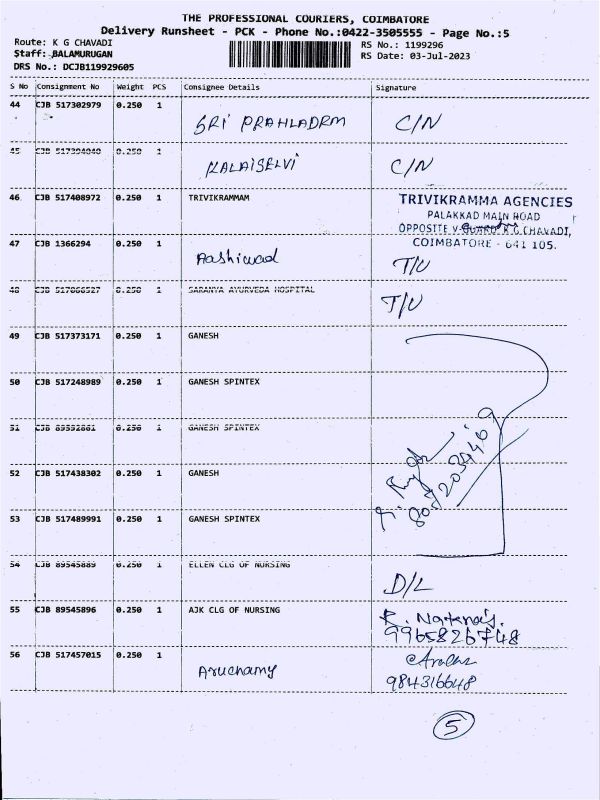 THE PROFESSIONAL COURIERS, COIMBATORE
Delivery Runsheet - PCK - Phone No.:0422-3505555 - Page No.:5
Route: K G CHAVADI RS No.: 1199296
Staff: BALAMURUGAN RS Date: 03-Jul-2023
DRS No.: DCJB119929605
S No Consignment No Weight PCS Consignee Details Signature
44 CJB 517302979 0.250 1 SRI PRAHLADRM C/N
45 CJB 517394040 0.250 1 KALAISELVI C/N
46 CJB 517408972 0.250 1 TRIVIKRAMMAM TRIVIKRAMMA AGENCIES
PALAKKAD MAIN ROAD
OPPOSITE V-GUARD K G CHAVADI,
COIMBATORE - 641 105.
47 CJB 1366294 0.250 1 Aashiwad T/U
48 CJB 517066527 0.250 1 SARANYA AYURVEDA HOSPITAL T/U
49 CJB 517373171 0.250 1 GANESH
50 CJB 517248989 0.250 1 GANESH SPINTEX
51 CJB 89592861 0.250 1 GANESH SPINTEX
52 CJB 517438302 0.250 1 GANESH
53 CJB 517489991 0.250 1 GANESH SPINTEX
54 CJB 89545889 0.250 1 ELLEN CLG OF NURSING D/L
55 CJB 89545896 0.250 1 AJK CLG OF NURSING R.
9965826748
56 CJB 517457015 0.250 1 Aruchamy
984316648
5